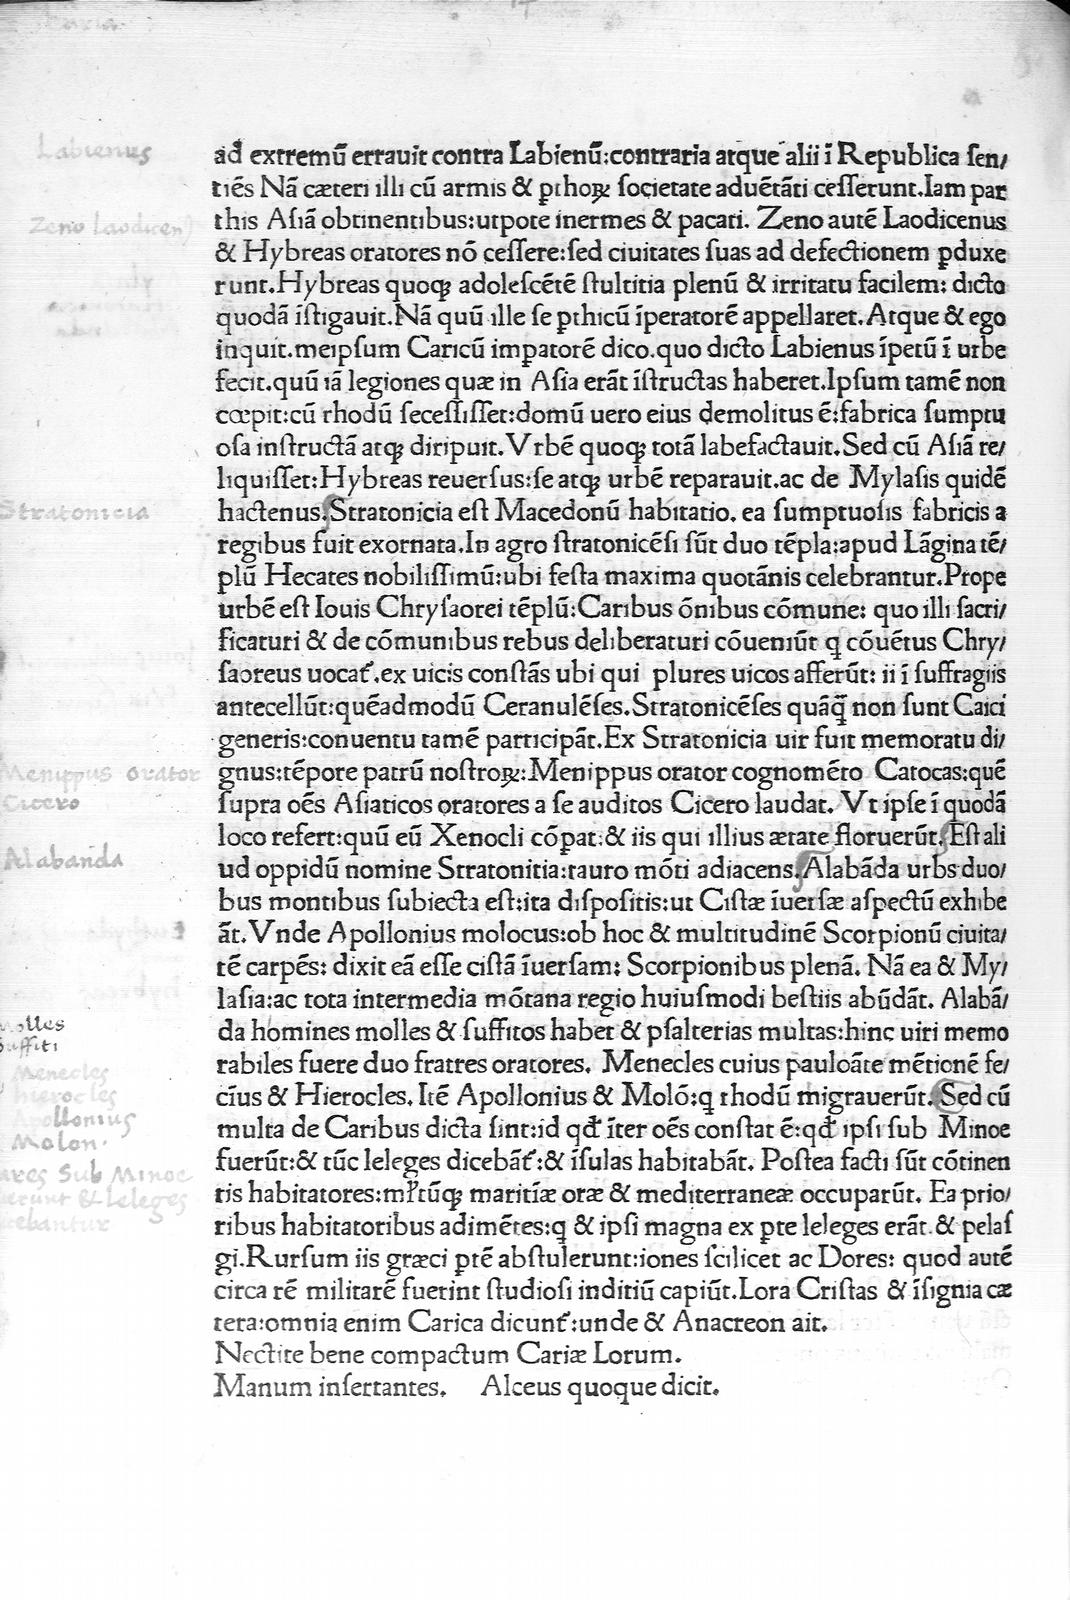 Labienus
ad extremū errauit contra Labienū:contraria atque alii ī Republica sen/
tiēs Nā cæteri illi cū armis & ꝑthoꝝ societate aduētāti cesserunt.Iam par
this Asiā obtinentibus:utpote inermes & pacati. Zeno autē Laodicenus
Zeno Laodicens
& Hybreas oratores nō cessere:sed ciuitates suas ad defectionem ꝑduxe
runt.Hybreas quoqꝫ adolescētē stultitia plenū & irritatu facilem: dicto
quodā īstigauit.Nā quū ille se ꝑthicū īperatorē appellaret.Atque & ego
inquit.meipsum Caricū imꝑatorē dico.quo dicto Labienus īpetū ī urbe
fecit.quū iā legiones quæ in Asia erāt īstructas haberet.Ipsum tamē non
cœpit:cū rhodū secessisset:domū uero eius demolitus ē:fabrica sumptu
osa instructā atqꝫ diripuit.Vrbē quoqꝫ totā labefactauit.Sed cū Asiā re/
liquisset:Hybreas reuersus:se atqꝫ urbē reparauit.ac de Mylasis quidē
Stratonicia
hactenus.Stratonicia est Macedonū habitatio. ea sumptuosis fabricis a
regibus fuit exornata.In agro stratonicēsi sūt duo tēpla:apud Lāgina tē/
plū Hecates nobilissimū:ubi festa maxima quotānis celebrantur.Prope
urbē est Iouis Chrysaorei tēplū:Caribus ōnibus cōmune: quo illi sacri/
ficaturi & de cōmunibus rebus deliberaturi cōueniūt q cōuētus Chry/
saoreus uocat᷑.ex uicis constās ubi qui plures uicos afferūt: ii ī suffragiis
antecellūt:quēadmodū Ceranulēses.Stratonicēses quāq̄ non sunt Caici
generis:conuentu tamē participāt.Ex Stratonicia uir fuit memoratu di/
Menippus orator
gnus:tēpore patrū nostroꝝ:Menippus orator cognomēto Catocas:quē
Cicero
supra oēs Asiaticos oratores a se auditos Cicero laudat. Vt ipse ī quodā
loco refert:quū eū Xenocli cōꝑat:& iis qui illius ætate floruerūt.Est ali
Alabanda
ud oppidū nomine Stratonitia:tauro mōti adiacens.Alabāda urbs duo/
bus montibus subiecta est:ita dispositis:ut Cistæ īuersæ aspectū exhibe
āt.Vnde Apollonius molocus:ob hoc & multitudinē Scorpionū ciuita/
tē carpēs: dixit eā esse cistā īuersam: Scorpionibus plenā. Nā ea & My/
lasia:ac tota intermedia mōtana regio huiusmodi bestiis abūdāt. Alabā/
Molles
da homines molles & suffitos habet & psalterias multas:hinc uiri memo
Suffiti
rabiles fuere duo fratres oratores. Menecles cuius pauloāte mētionē fe/
Menecles
hierocles
cīus & Hierocles. Itē Apollonius & Molō:q rhodū migrauerūt.Sed cū
Apollonius
Molon.
multa de Caribus dicta sint:id qđ īter oēs constat ē:qđ ipsi sub Minoe
fuerūt:& tūc leleges dicebāt᷑:& īsulas habitabāt. Postea facti sūt cōtinen
ares Sub Minoe
erunt & Leleges
cebantur
tis habitatores:mꝉtūqꝫ maritīæ oræ & mediterraneæ occuparūt. Ea prio/
ribus habitatoribus adimētes:q & ipsi magna ex ꝑte leleges erāt.& pelas
gi.Rursum iis græci ꝑtē abstulerunt:iones scilicet ac Dores: quod autē
circa rē militarē fuerint studiosi inditiū capiūt.Lora Cristas & īsignia cæ
tera:omnia enim Carica dicunt᷑:unde & Anacreon ait.
Nectite bene compactum Cariæ Lorum.
Manum insertantes. Alceus quoque dicit.